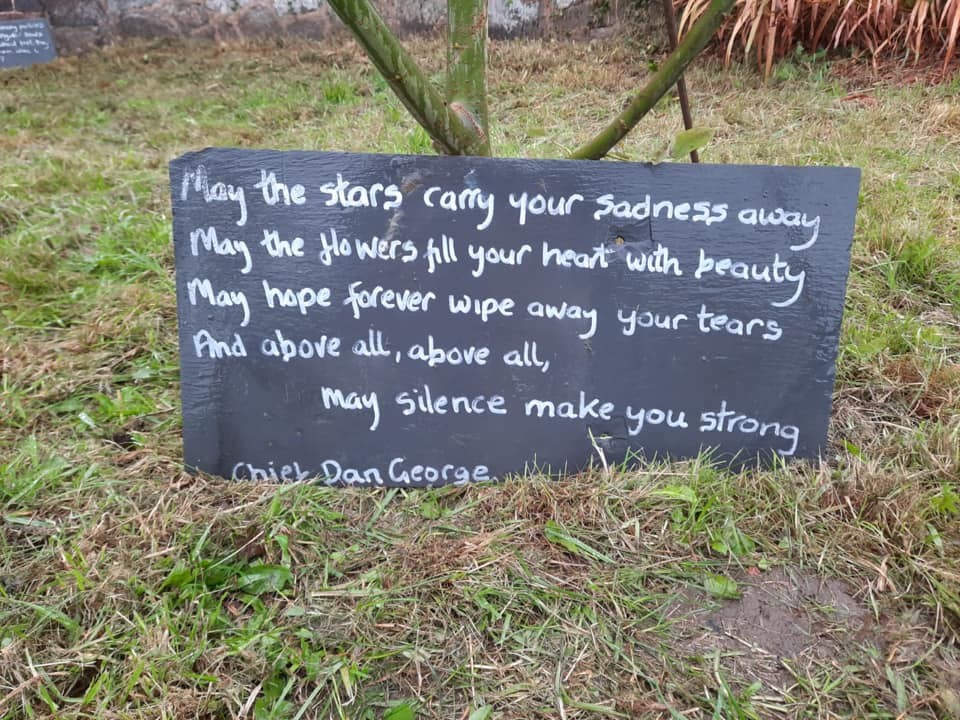 May the stars carry your sadness away
May the flowers fill your heart with beauty
May hope forever wipe away your tears
And above all, above all,
may silence make you strong
Chief Dan George.